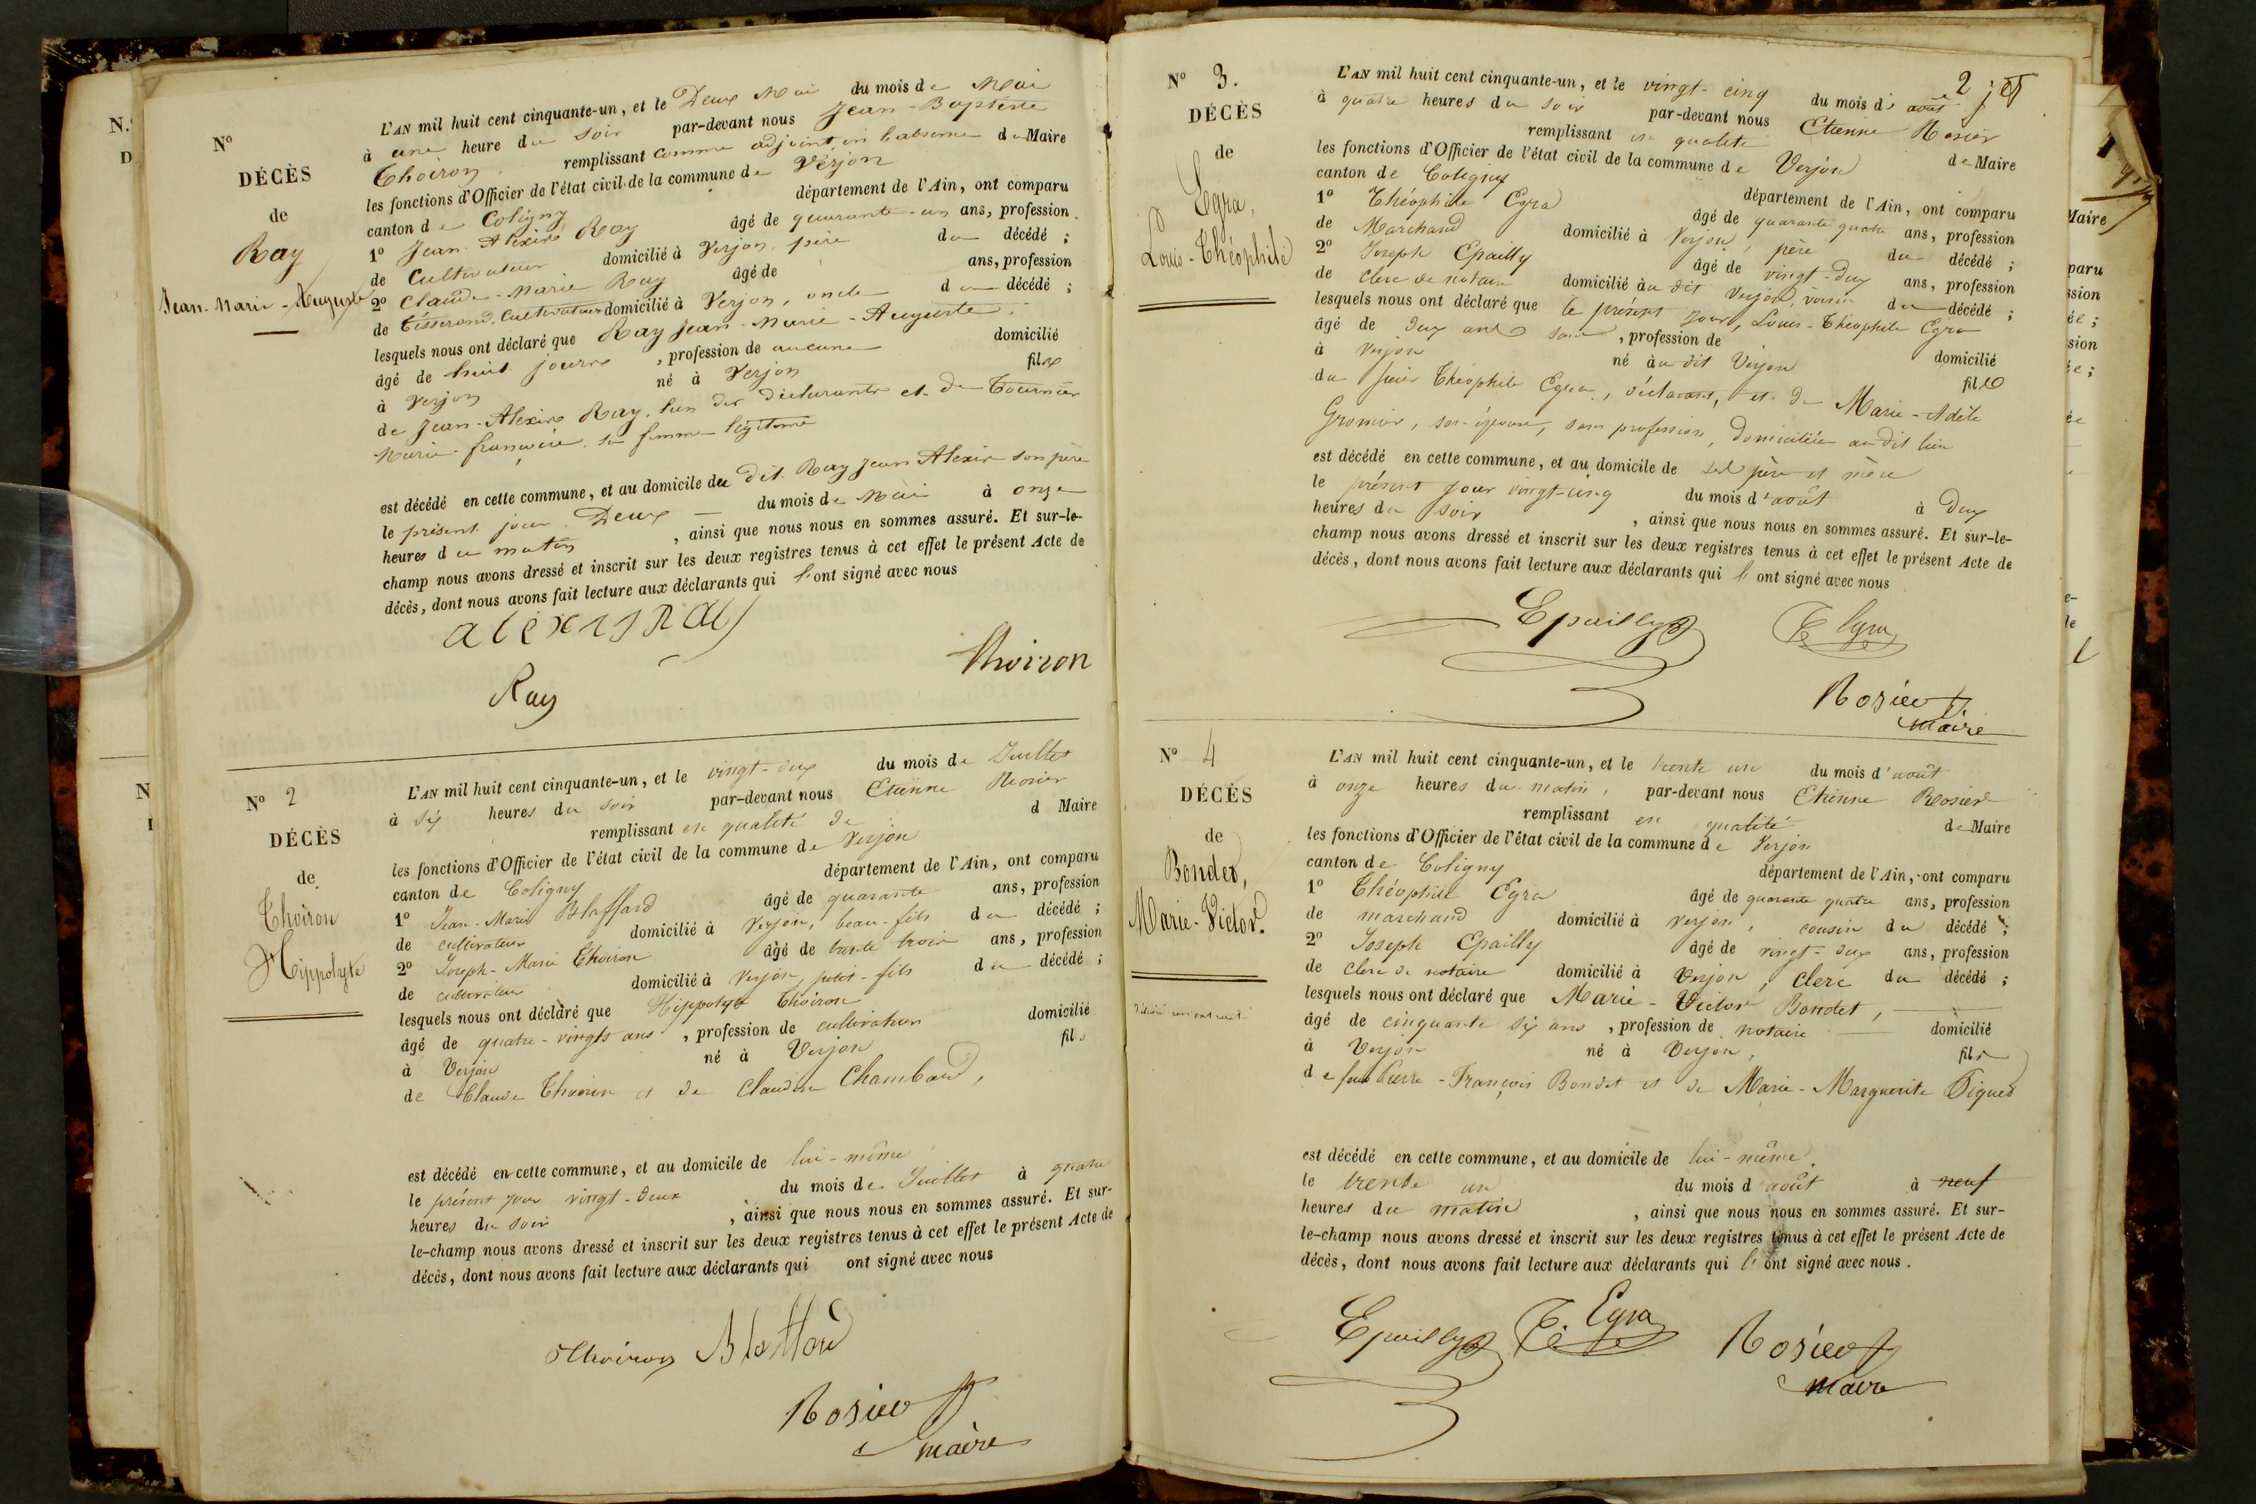 N°
DÉCÈS
de
Ray
Jean-Marie-Auguste
L'AN mil huit cent cinquante-un, et le Deux Mai du mois de Mai
à une heure du soir par-devant nous Jean-Baptiste
Thoiron remplissant comme adjoint en l'absence du Maire
les fonctions d'Officier de l'état civil de la commune de Verjon
canton de Coligny département de l'Ain, ont comparu
1° Jean Alexis Ray âgé de quarante-un ans, profession
de Cultivateur domicilié à Verjon, père du décédé ;
2° Claude-Marie Ray âgé de ans, profession
de tisserand, Cultivateur domicilié à Verjon, oncle du décédé ;
lesquels nous ont déclaré que Ray Jean-Marie-Auguste
âgé de huit jours, profession de aucune domicilié
à Verjon né à Verjon fils
de Jean-Alexis Ray, l'un des déclarants et de Tournier
Marie-françoise sa femme légitime
est décédé en cette commune, et au domicile du dit Ray Jean Alexis son père
le présent jour Deux du mois de Mai à onze
heures du matin, ainsi que nous nous en sommes assuré. Et sur-le-
champ nous avons dressé et inscrit sur les deux registres tenus à cet effet le présent Acte de
décès, dont nous avons fait lecture aux déclarants qui l'ont signé avec nous
alexis Ray
Thoiron
Ray
N° 2
DÉCÈS
de
Thoiron
Hippolyte
L'AN mil huit cent cinquante-un, et le vingt-deux du mois de Juillet
à six heures du soir par-devant nous Etienne Rosier
remplissant en qualité de d Maire
les fonctions d'Officier de l'état civil de la commune de Verjon
canton de Coligny département de l'Ain, ont comparu
1° Jean-Marie Blaffard âgé de quarante ans, profession
de cultivateur domicilié à Verjon, beau-fils du décédé ;
2° Joseph-Marie Thoiron âgé de trente trois ans, profession
de cultivateur domicilié à Verjon, petit-fils du décédé ;
lesquels nous ont déclaré que Hippolyte Thoiron
âgé de quatre-vingts ans, profession de cultivateur domicilié
à Verjon né à Verjon fils
de Claude Thoiron et de Claudine Chambard,
est décédé en cette commune, et au domicile de lui-même
le présent jour vingt-deux du mois de Juillet à quatre
heures du soir, ainsi que nous nous en sommes assuré. Et sur-
le-champ nous avons dressé et inscrit sur les deux registres tenus à cet effet le présent Acte de
décès, dont nous avons fait lecture aux déclarants qui ont signé avec nous
Thoiron Blaffard
Rosier
maire
2
N° 3.
DÉCÈS
de
Egra,
Louis-Théophile
L'AN mil huit cent cinquante-un, et le vingt-cinq du mois d'août
à quatre heures du soir par-devant nous Etienne Rosier
remplissant en qualité de Maire
les fonctions d'Officier de l'état civil de la commune de Verjon
canton de Coligny département de l'Ain, ont comparu
1° Théophile Egra âgé de quarante quatre ans, profession
de Marchand domicilié à Verjon, père du décédé ;
2° Joseph Epailly âgé de vingt-deux ans, profession
de clerc de notaire domicilié au dit Verjon, voisin du décédé ;
lesquels nous ont déclaré que le présent jour, Louis-Théophile Egra
âgé de deux ans, profession de domicilié
à Verjon né au dit Verjon fils
du sieur Théophile Egra, déclarant, et de Marie-Adèle
son épouse, sans profession, domiciliée au dit lieu
est décédé en cette commune, et au domicile de ses père et mère
le présent jour vingt-cinq du mois d'août à deux
heures du soir, ainsi que nous nous en sommes assuré. Et sur-le-
champ nous avons dressé et inscrit sur les deux registres tenus à cet effet le présent Acte de
décès, dont nous avons fait lecture aux déclarants qui l'ont signé avec nous
Epailly T. Egra
Rosier
maire
N° 4
DÉCÈS
de
Bondet,
Marie-Victor.
L'AN mil huit cent cinquante-un, et le trente un du mois d'août
à onze heures du matin, par-devant nous Etienne Rosier
remplissant en qualité de Maire
les fonctions d'Officier de l'état civil de la commune de Verjon
canton de Coligny département de l'Ain, ont comparu
1° Théophile Egra âgé de quarante quatre ans, profession
de marchand domicilié à Verjon, cousin du décédé ;
2° Joseph Epailly âgé de vingt-deux ans, profession
de clerc de notaire domicilié à Verjon, clerc du décédé ;
lesquels nous ont déclaré que Marie-Victor Bondet,
âgé de cinquante six ans, profession de notaire domicilié
à Verjon né à Verjon, fils
de feus Pierre-François Bondet et de Marie-Marguerite Pigues
est décédé en cette commune, et au domicile de lui-même.
le trente un du mois d'août à neuf
heures du matin, ainsi que nous nous en sommes assuré. Et sur-
le-champ nous avons dressé et inscrit sur les deux registres tenus à cet effet le présent Acte de
décès, dont nous avons fait lecture aux déclarants qui l'ont signé avec nous.
Epailly T. Egra Rosier
maire